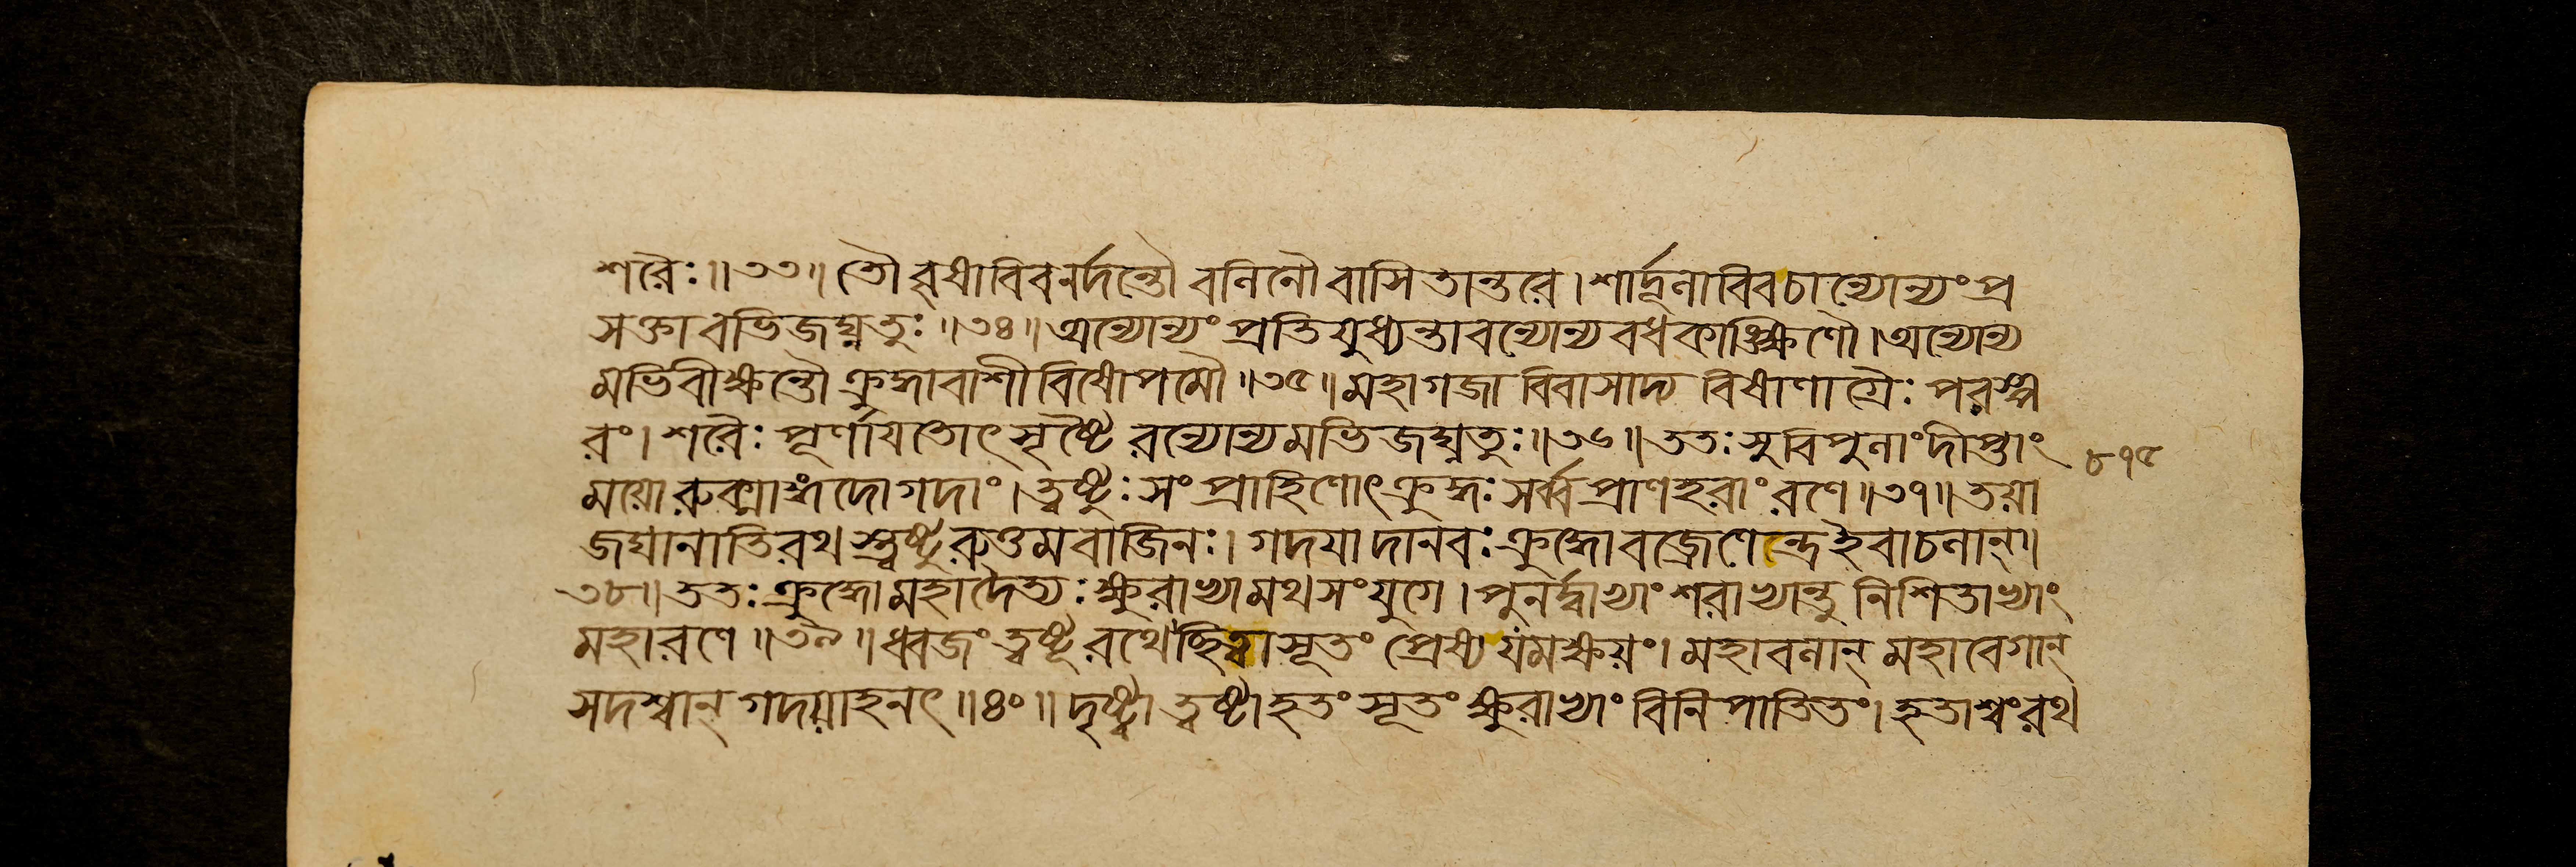 শরৈঃ॥৩৩॥ তৌ বৃষাবিবনর্দন্তৌ বলিনৌ বাসিতান্তরে। শার্দূলাবিবচান্যোন্যংপ্র
সক্তাবভিজঘ্নতুঃ॥৩৪॥ অন্যোন্যং প্রতিযুধ্যন্তাবন্যোন্যবধকাঙ্ক্ষিণৌ। অন্যোন্য
মভিবীক্ষন্তৌ ক্রুদ্ধাবাশীবিষোপমৌ॥৩৫॥ মহাগজাবিবাসাদ্য বিষাণাগ্রৈঃ পরস্প
রং। শরৈঃ পূর্ণায়তোৎসৃষ্টৈরন্যোন্যমভিজঘ্নতুঃ॥৩৬॥ ততঃ সুবিপুলাংদীপ্তাং
ময়োরুক্মাঙ্গদোগদাং। ত্বষ্টুঃ সংপ্রাহিণোৎক্রুদ্ধঃ সর্ব্বপ্রাণহরাংরণে॥৩৭॥ তয়া
জঘানাতিরথস্ত্বষ্টুরুত্তমবাজিনঃ। গদয়াদানবঃ ক্রুদ্ধোবজ্রেণেন্দ্রইবাচলান্॥
৩৮॥ ততঃ ক্রুদ্ধোমহাদৈত্যঃ ক্ষুরাভ্যামথসংযুগে। পুনর্দ্বাভ্যাং শরাভ্যান্তু নিশিতাভ্যাং
মহারণে॥৩৯॥ ধ্বজং ত্বষ্টূরথেচ্ছিত্বাসূতং প্রেষ্যযমক্ষয়ং। মহাবলান্ মহাবেগান্
সদশ্বান্ গদয়াহনৎ॥৪০॥ দৃষ্ট্বা ত্বষ্টাহতং সূতং ক্ষুরাভ্যাং বিনিপাতিতং। হতাশ্বংরথ
৮৭৫